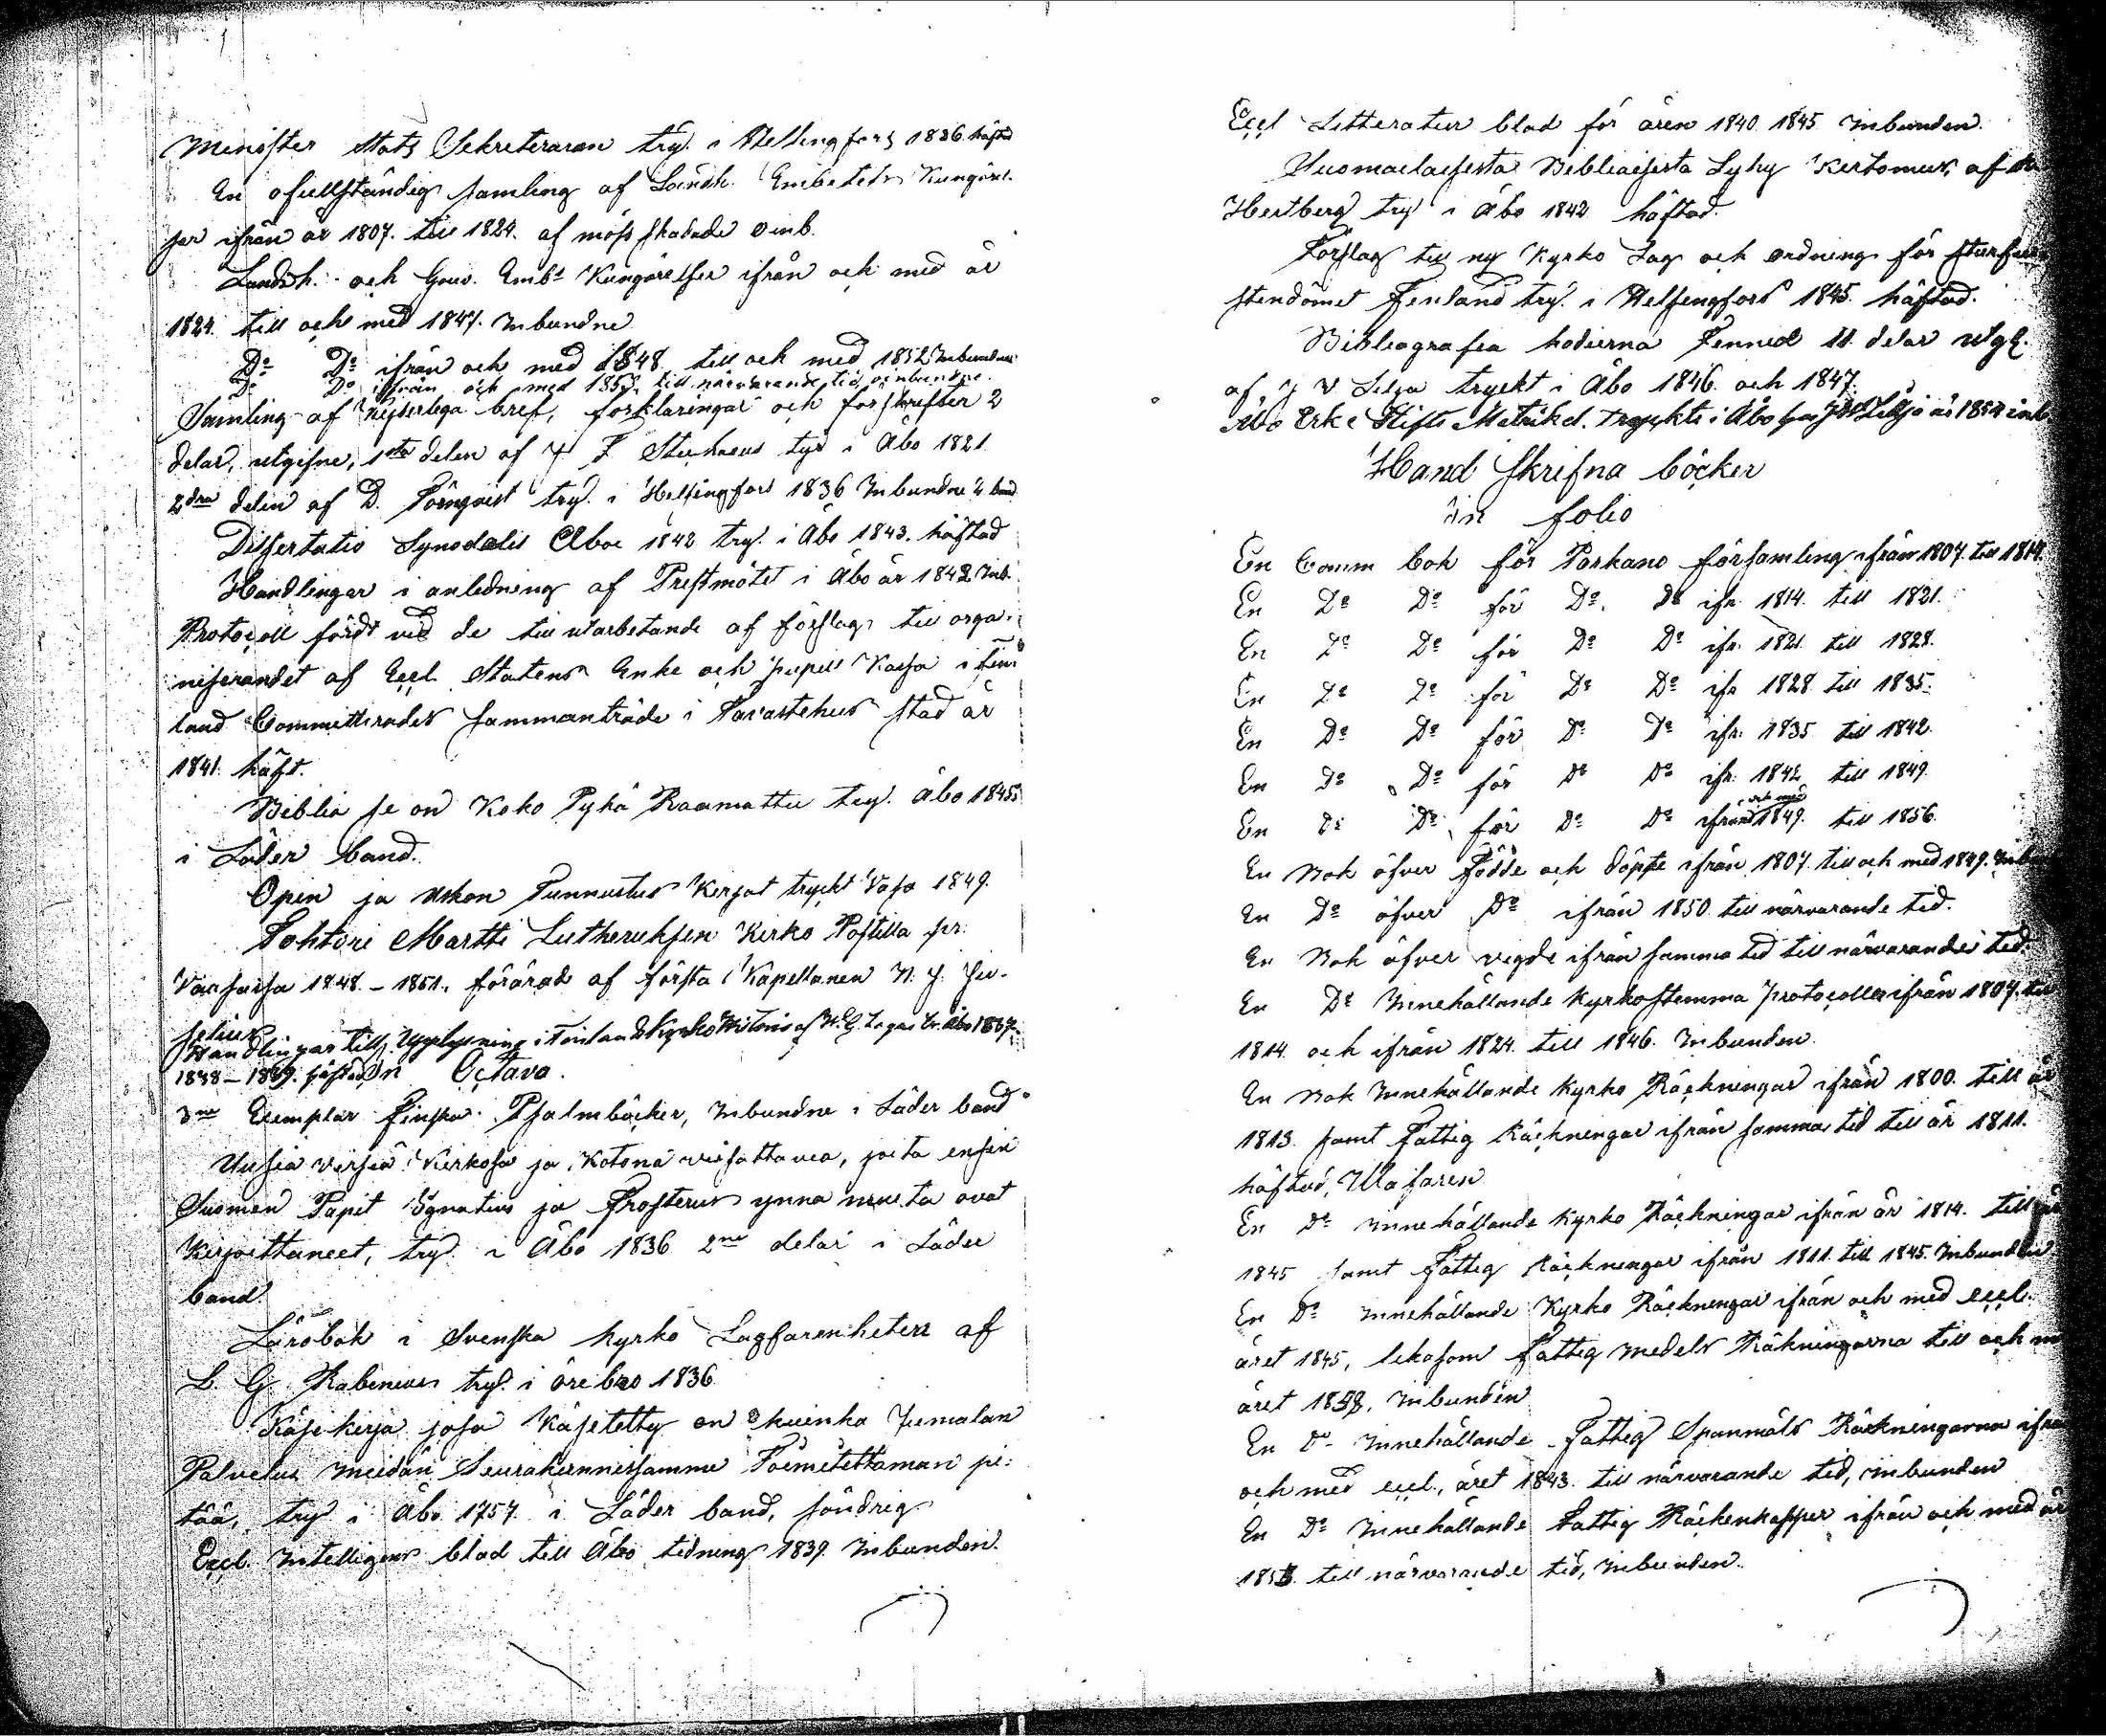 Minister Stats Sekreteraren try. i Helsingfors 1836 häftad
En ofullständig samling af Landsh. Embetets Kungörel-
ser ifrån år 1807. till 1824. af möss skadade oinb.
Landsh. och Gouv. Embts Kungörelser ifrån och med år
1824. till och med 1847. Inbundne
Do Do ifrån och med 1848 till och med 1852 Inbundne
Do Do ifrån och med 1853. till närvarande tid, oinbundne.
Samling af Kejserliga bref, förklaringar och forskrifter 2
delar, utgifne, 1sta delen af J F Stichaeus tryd i Åbo 1821
2dra delen af D. Törnqvist try. i Helsingfors 1836 Inbundne 2 band
Dissertatio Synodalis Aboe 1842 try. i Åbo 1843. häftad
Handlingar i anledning af Prestmötet i Åbo år 1842 Inb.
Protocoll fördt vid de till utarbetande af förslag till orga-
niserandet af Eccl. Statens Enke och pupill Kassa i Fin
land Committerades sammanträde i Tavastehus stad år
1841. häft.
Biblia se on Koko Pyhä Raamattu try. Åbo 1845
i Läder band.
Open ja Uskon Tunnustus Kirjat tryckt Vasa 1849.
Tohtori Martti Lutheruksen Kirko Postilla pr.
Vaasassa 1848. – 1851., förärad af första Kapellanen N. J. Ju-
selius
Handlingar till Upplysning i Finlands Kyrko Historia af W. G. Lagus tr. Åbo 1837,
1838 – 1839. häftad In Octavo.
3ne Exemplar finska Psalmböcker, Inbundne i Läder band
Uusia Virsiä Kirkosa ja Kotona veisattavia, joita ensin
Suomen Papit Ignatius ja Frosterus ynnä muita ovat
Kirjoittaneet, tryd i Åbo 1836 2ne delar i Läder
band.
Lärobok i Svenska Kyrko Lagfarenheten af
L. G. Rabenius try. i Örebro 1836
Käsi kirja josa Käsitetty on kuinka Jumalan
Palvelus meidän Seurakunnissamme Toimitettaman pi-
tää, try i Åbo 1757. i Läder band, söndrig
Eccl. Intelligens blad till Åbo tidning 1839. Inbunden.
Eccl Litteratur blad för åren 1840 1845 Inbunden.
Suomalaisesta Bibliasta Lyhy Kertomus, af
Hertberg try i Åbo 1842 häftad.
Förslag till ny Kyrko Lag och ordning för storfur
stendömet Finland try. i Helsingfors 1845. häftad.
Bibliografia hodierna Fennica 11 delar utg.
af J W Lilja tryckt i Åbo 1846 och 1847.
Åbo Erke Stifts Matrikel. Tryckt i Åbo hos J W Lillja år 1854 inb
Hand skrifna böcker
in folio
En Comm bok för Parkano församling ifrån 1807. till 1814.
En Do Do för Do. Do ifr. 1814. till 1821.
En Do Do för Do Do ifr. 1821. till 1828.
En Do Do för Do Do ifr 1828 till 1835.
En Do Do för Do Do ifr. 1835 till 1842.
En Do Do för Do Do ifr. 1842 till 1849.
En Do Do för Do Do ifrån och med 1849. till 1856.
En Bok öfver födde och döpte ifrån 1807. till och med 1849.
En Do öfver Do ifrån 1850 till närvarande tid.
En Bok öfver vigde ifrån samma tid till närvarande tid.
En Do Innehållande Kyrkostemma protocoller ifrån 1807. till
1814. och ifrån 1824. till 1846. Inbunden.
En Bok Innehållande Kyrko Räckningar ifrån 1800. till år
1813 samt Fattig Räckningar ifrån samma tid till år 1811.
häftad,
En Do Innehållande Kyrko Räckningar ifrån år 1814. till år
1845 samt Fattig Räckningar ifrån 1811. till 1845. Inbunden
En Do Innehållande Kyrko Räckningar ifrån och med eccl.
året 1845, likasom Fattig medels Räkningarna till och
året 1858, Inbunden
En Do Innehållande Fattig Spanmåls Räckningarna ifrån
och med eccl., året 1843. till närvarande tid, inbunden
En Do Innehållande Fattig ifrån och med år
till närvarande tid, Inbunden.